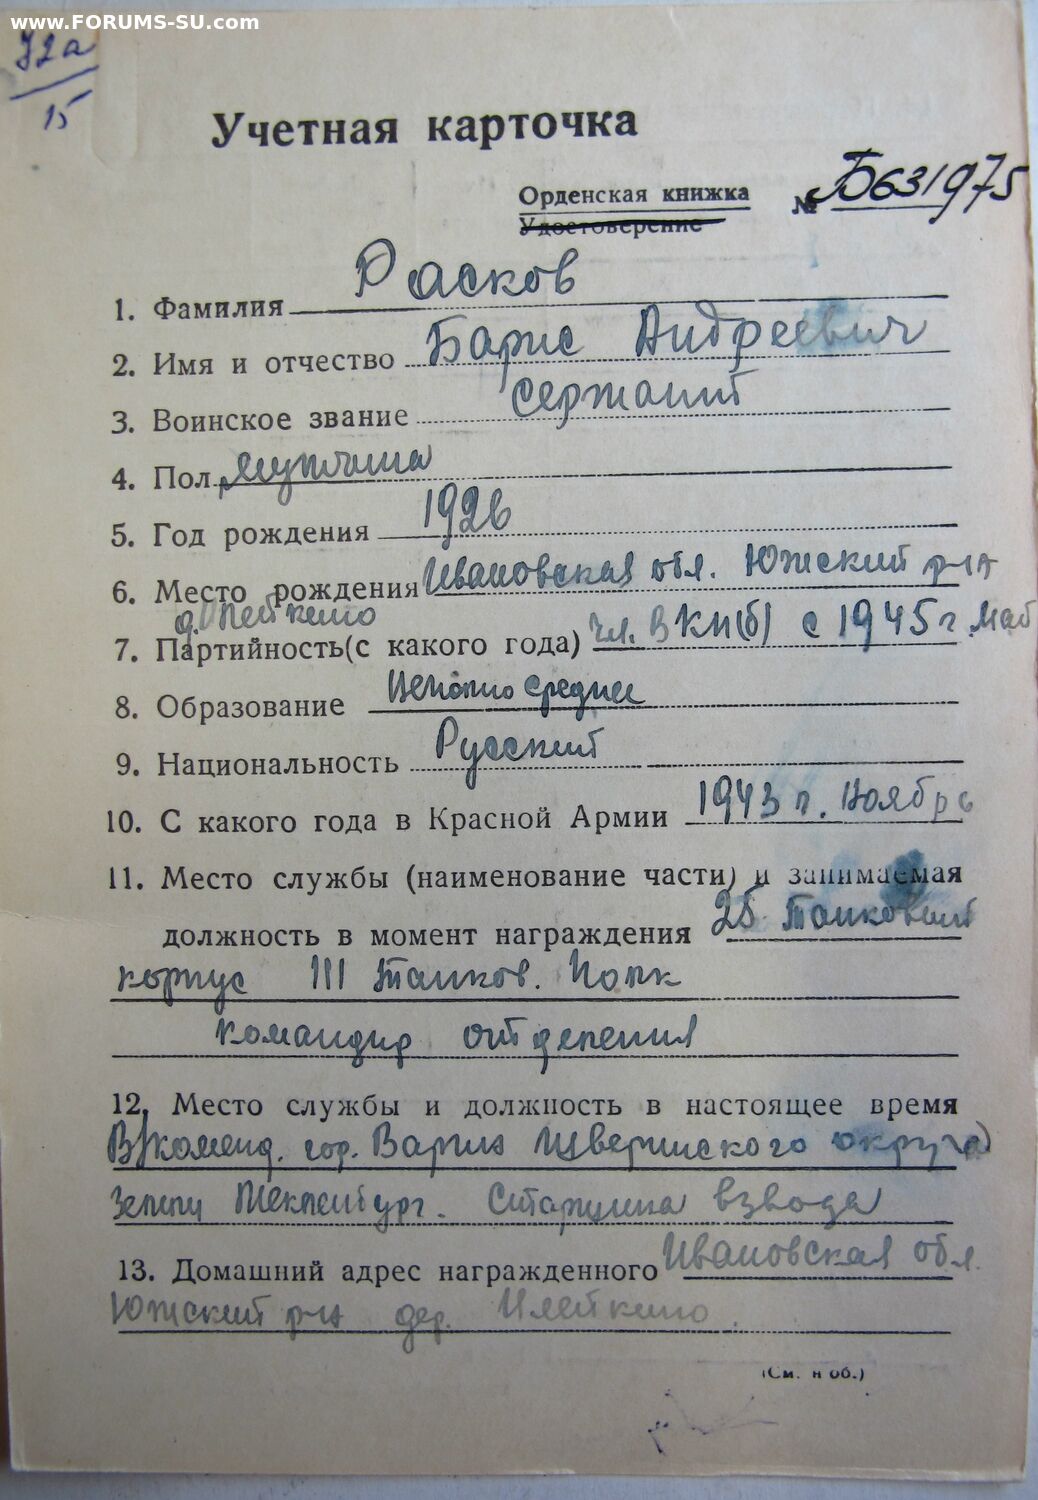 www.FORUMS-SU.com
72а
15
Учетная карточка
Орденская книжка № Б631975
Удостоверение
1. Фамилия Расков
2. Имя и отчество Барис Андреевич
3. Воинское звание сержант
4. Пол мужчина
5. Год рождения 1926
6. Место рождения Ивановская обл. Южский р-н
д. Илейкино
7. Партийность (с какого года) чл. ВКП(б) с 1945 г. Май
8. Образование Неполно среднее
9. Национальность Русский
10. С какого года в Красной Армии 1943 г. Ноябрь
11. Место службы (наименование части) и занимаемая
должность в момент награждения 25 Танковый
корпус 111 танков. Полк
командир отделения
12. Место службы и должность в настоящее время
В/коменд. гор. Варин Шверинского округа
Земли Мекленбург. Старшина взвода
13. Домашний адрес награжденного Ивановская обл.
Южский р-н дер. Илейкино.
(См. н об.)